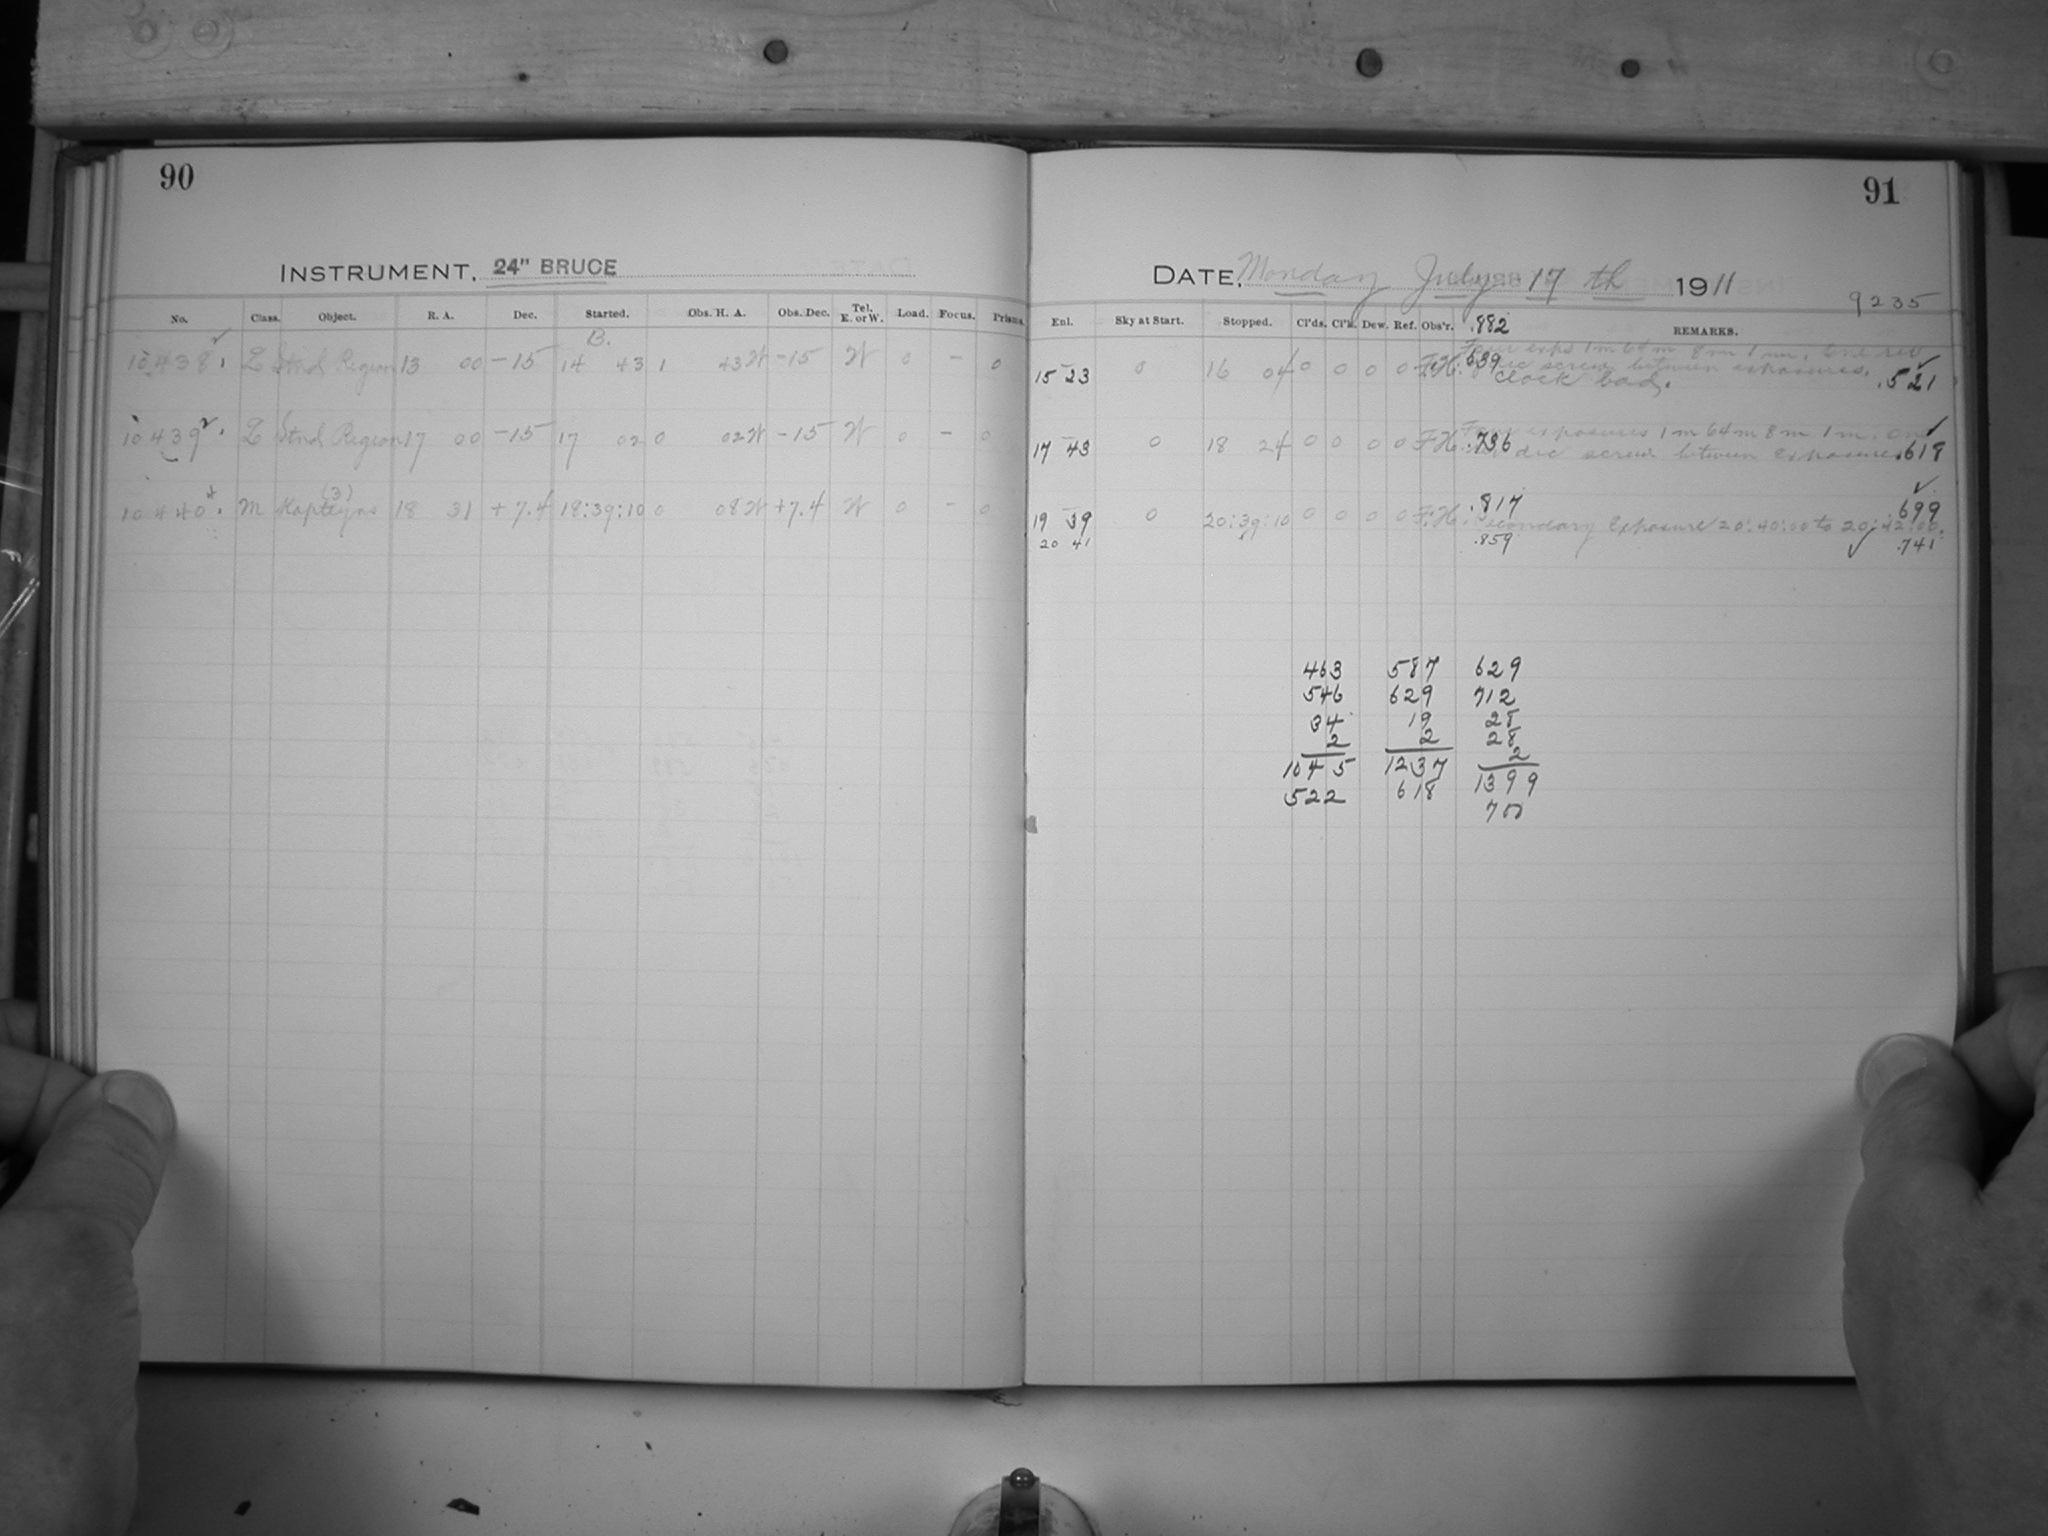 90
INSTRUMENT. 24" BRUCE
No. Class. Object. R. A. Dec. Started. Obs. H. A. Obs. Dec. Tel. E. or W. Load. Focus. Prisms.
B.
10438 Stnd Region 13 00 -15 14 43 1 43 W -15 W 0 - 0
10439 Stnd Region 17 00 -15 17 02 0 02 W -15 W 0 - 0
(3)
10440 M Kapteyns 18 31 +7.4 18:39:10 0 08 W +7.4 W 0 - 0
91
DATE, Monday July 17 th 1911
9235
Enl. Sky at Start. Stopped. Cl'ds. Cl'k. Dew. Ref. Obs'r. .882 REMARKS.
Four exps 1m 64m 8m 1m. One rev
15 23 0 16 04 0 0 0 0 F.H. .639 dec screw between exposures.
Clock bad. .521
Four exposures 1m 64m 8m 1m. One
17 43 0 18 24 0 0 0 0 F.H. .736 dec screw between exposures .618
.817 .699
19 39 0 20:39:10 0 0 0 0 F.H. Secondary Exposure 20:40:00 to 20:42:00.
20 41 .859 .741
463 587 629
546 629 712
34 19 28
2 2 28
2
1045 1237 1399
522 618 700